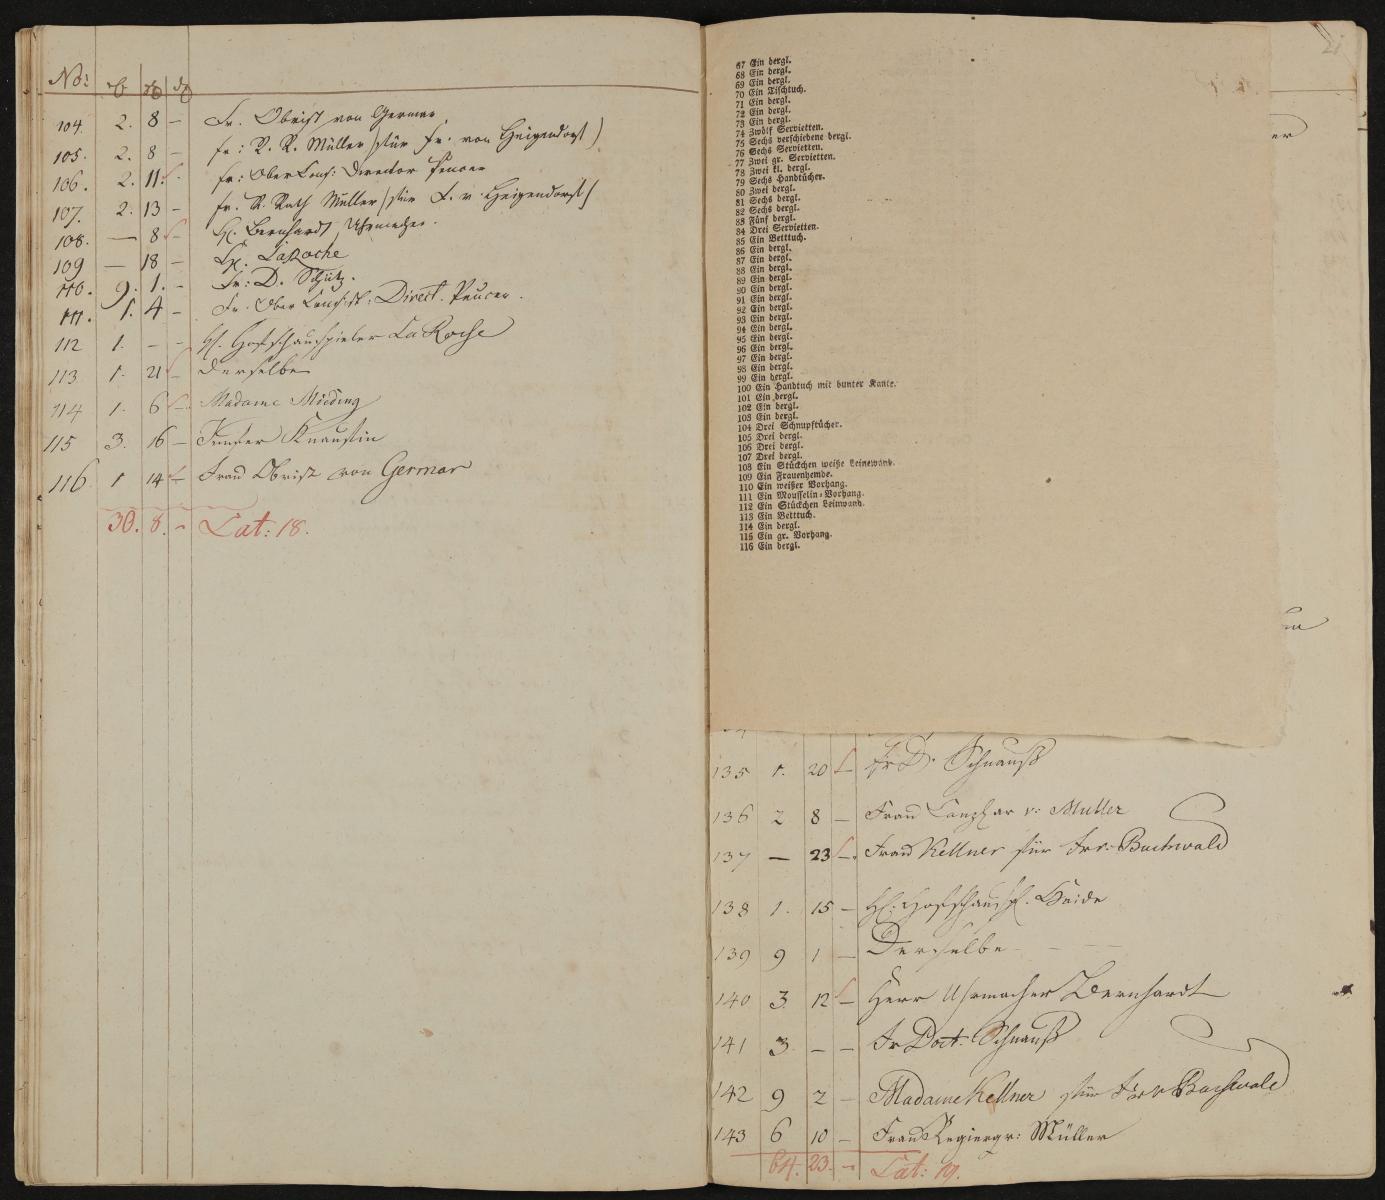 No:
104. 2. 8 — Fr. Obrist von Germar
105. 2. 8 — Fr: R. R. Müller /für Fr: von Heigendorf)
106. 2. 11. Fr: Ober Cons: Director Peucer
107. 2. 13 — Fr. R. Rath Müller /für F. v. Heigendorf/
108. — 8 — H. Bernhardt, Uhrmacher.
109 — 18 — H. LaRoche
110. 9. 1. - Fr: D. Schütz.
111. 1. 4 — Fr. Ober Consist: Direct. Peucer.
112 1. — - H. Hofschauspieler LaRoche
113 1. 21 — Derselbe
114 1. 6 — Madame Mieding
115 3. 16 — Knaustin
116 1 14 — Frau Obrist von Germar
30. 8. - Lat: 18.
21
67 Ein dergl.
68 Ein dergl.
69 Ein dergl.
70 Ein Tischtuch.
71 Ein dergl.
72 Ein dergl.
73 Ein dergl.
74 Zwölf Servietten.
75 Sechs verschiedene dergl.
76 Sechs Servietten.
77 Zwei gr. Servietten.
78 Zwei kl. dergl.
79 Sechs Handtücher.
80 Zwei dergl.
81 Sechs dergl.
82 Sechs dergl.
83 Fünf dergl.
84 Drei Servietten.
85 Ein Betttuch.
86 Ein dergl.
87 Ein dergl.
88 Ein dergl.
89 Ein dergl.
90 Ein dergl.
91 Ein dergl.
92 Ein dergl.
93 Ein dergl.
94 Ein dergl.
95 Ein dergl.
96 Ein dergl.
97 Ein dergl.
98 Ein dergl.
99 Ein dergl.
100 Ein Handtuch mit bunter Kante.
101 Ein dergl.
102 Ein dergl.
103 Ein dergl.
104 Drei Schnupftücher.
105 Drei dergl.
106 Drei dergl.
107 Drei dergl.
108 Ein Stückchen weiße Leinewand.
109 Ein Frauenhemde.
110 Ein weißer Vorhang.
111 Ein Mousselin-Vorhang.
112 Ein Stückchen Leinwand.
113 Ein Betttuch.
114 Ein dergl.
115 Ein gr. Vorhang.
116 Ein dergl.
135 1. 20 — Fr D. Schnauß
136 2 8 — Frau Canzlar v: Muller
137 — 23 —. Frau Kellner für Fr v: Buchwald
138 1. 15 — H. Hofschausp. Haide
139 9 1 — Derselbe
140 3. 12 — Herr Uhrmacher Bernhardt
141 3 — — Fr Doct. Schnauß
142 9 2 — Madame Kellner für Fr v Buchwald
143 6 10 — Frau Regiergr: Müller
64. 23. - Lat: 19.